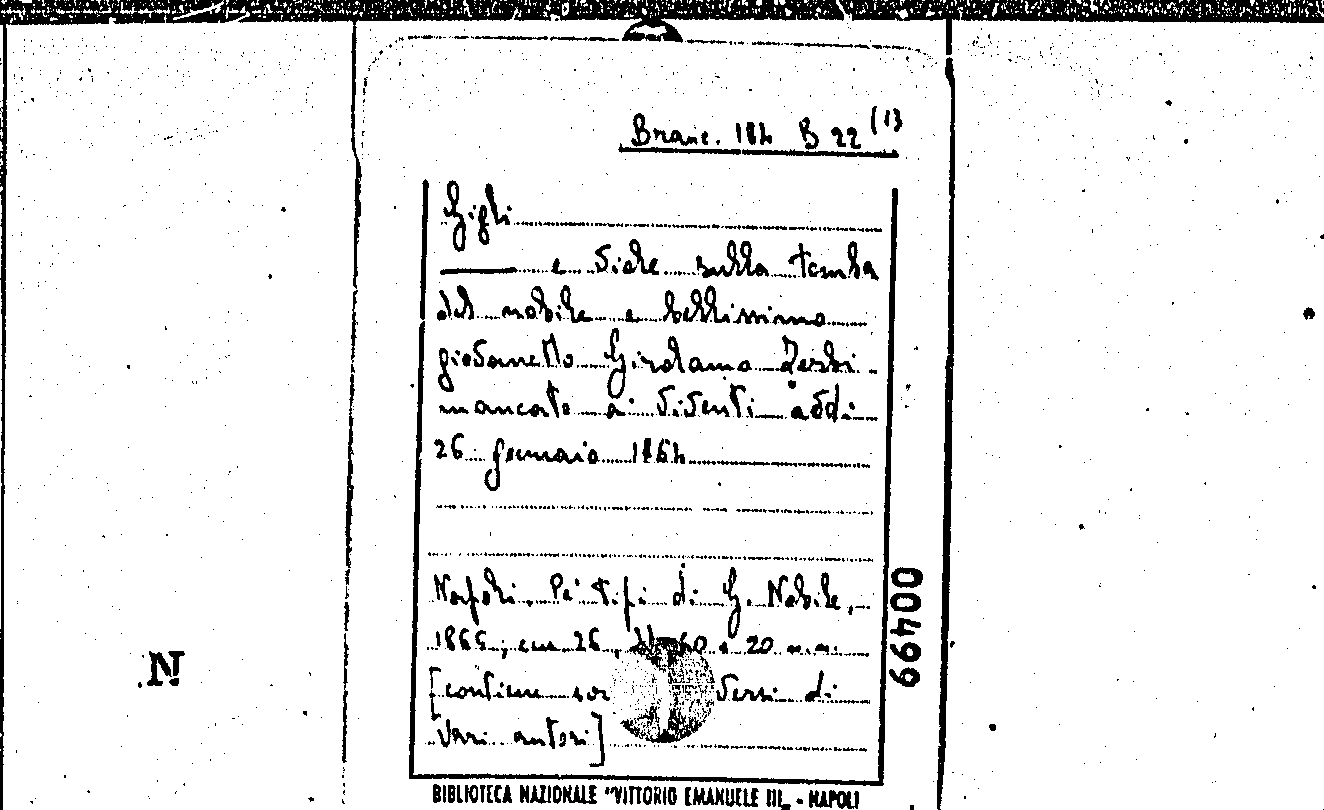 Branc. 184 B 22 (13
Gigli
e viole sulla tomba
del nobile e bellissimo
giovanetto Girolamo Zerbi
mancato ai viventi addì
26 gennaio 1864
Napoli. Pe' tipi di G. Nobile,
1865; cm 26, 60 e 20 n.n.
[contiene versi di
vari autori]
00499
N
BIBLIOTECA NAZIONALE "VITTORIO EMANUELE III„ - NAPOLI